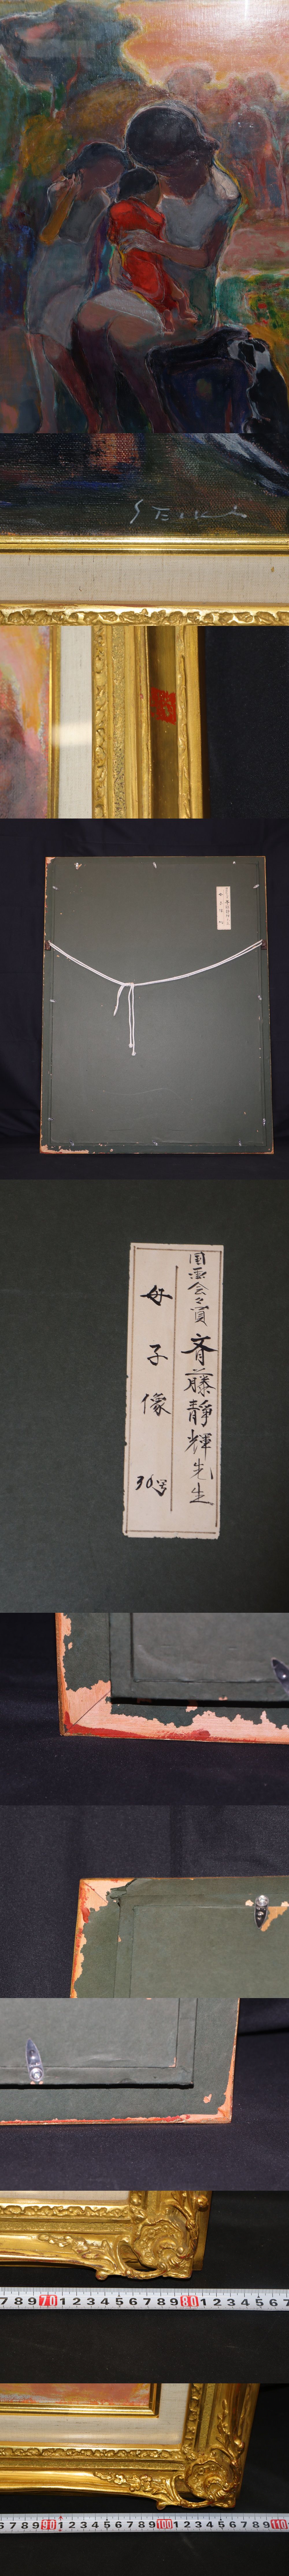 S Eiki
国画会々員 斉藤静輝先生
母子像 30号
7 8 9 70 1 2 3 4 5 6 7 8 9 80 1 2 3 4 5 6 7
6 7 8 9 90 1 2 3 4 5 6 7 8 9 100 1 2 3 4 5 6 7 8 9 110